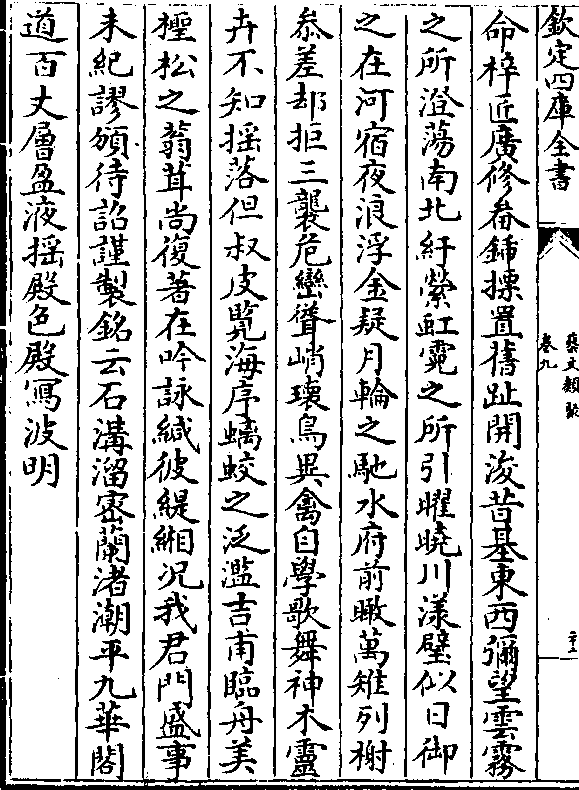 欽定四庫全書
藝文類聚
卷九
命梓匠廣修畚鍤揲置舊趾開浚昔基東西彌望雲霧
之所澄蕩南北紆縈虹霓之所引曜曉川漾璧似日御
之在河宿夜浪浮金疑月輪之馳水府前瞰萬雉列榭
叅差却拒三襲危巒聳峭瓌鳥異禽自學歌舞神木靈
卉不知揺落但叔皮覽海序螭蛟之泛濫吉甫臨舟美
檉松之蓊茸尚復著在吟詠緘彼緹緗況我君門盛事
未紀謬頒待詔謹製銘云石溝溜密蘭渚潮平九華閣
道百丈層盈液揺殿色殿寫波明